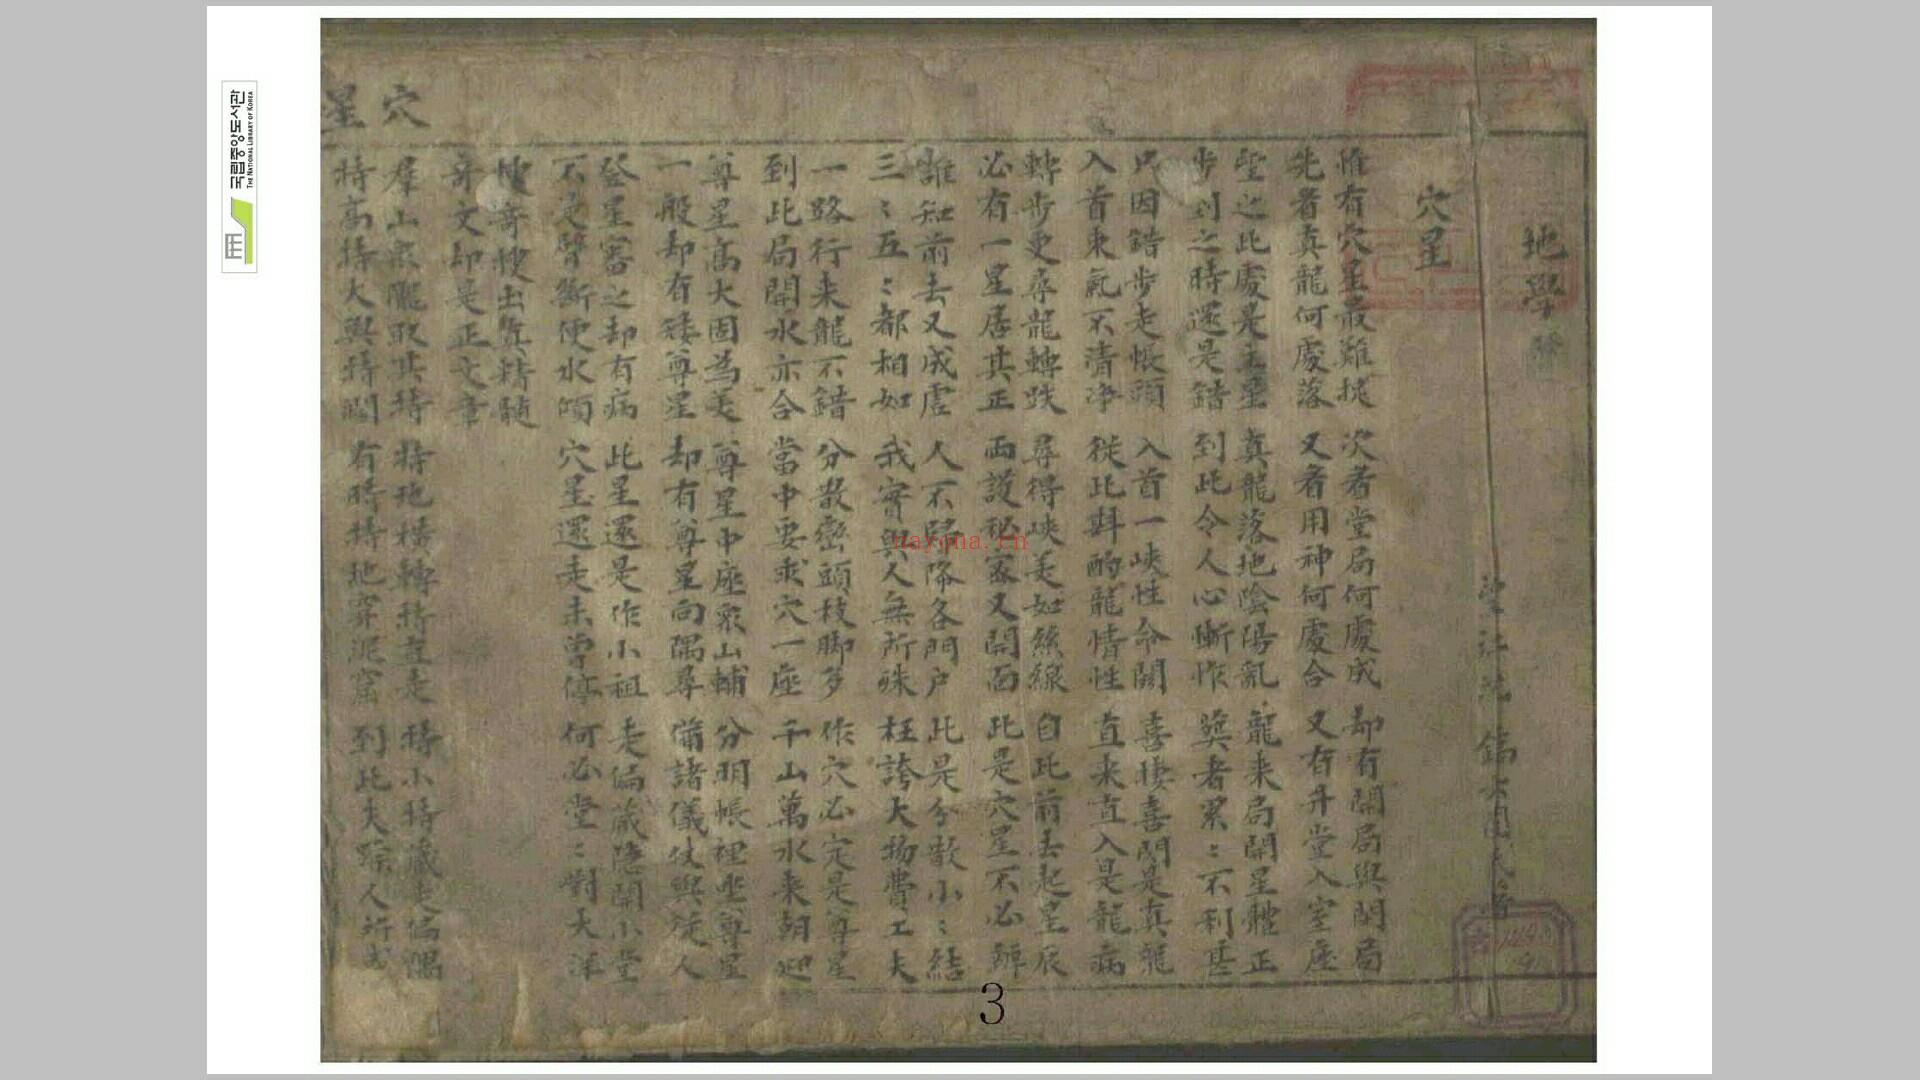 地學
望江沈鎬六圃氏著
穴星
惟有穴星最難 次者堂局何處成 却有開局與閉局
先者真龍何處落 又者用神何處合 又有升堂入室座
望之此處是主星 真龍落地陰陽亂 龍来局開星體正
步到之時還是錯 到此令人心慚怍 者累〻不利甚
只因錯步走帳頭 入首一峽性命關 喜棲喜閃是真龍
入首乘氣不清净 從此斟酌龍情性 直来直入是龍病
轉步更尋龍轉跌 尋得峽美如絲線 自此前去起星辰
必有一星居其正 兩護秘密又開面 此是穴星不必辨
誰知前去又成虛 人不歸降各門户 此是分散小〻結
三〻五〻都相如 我實與人無所殊 枉誇大物費工夫
一路行来龍不錯 分散巒頭枝脚多 作穴必定是尊星
到此局開水亦合 當中要求穴一座 千山萬水来朝迎
尊星高大固為美 尊星中座衆山輔 分明帳裡坐尊星
一般却有矮尊星 却有尊星向隅尋 備諸儀仗與従人
登星審之却有病 此星還是作小祖 走偏藏隐開小堂
不是臂斷便水傾 穴星還走未曾停 何必堂〻對大洋
搜奇搜出真精髓
奇文却是正文章
羣山衆隴取其特 特地横轉特直走 特小特藏走偏隅
特高特大與特闊 有時特地穿泥窟 到此失踪人所
穴星
국립중앙도서관
THE NATIONAL LIBRARY OF KOREA
nayona.cn
3